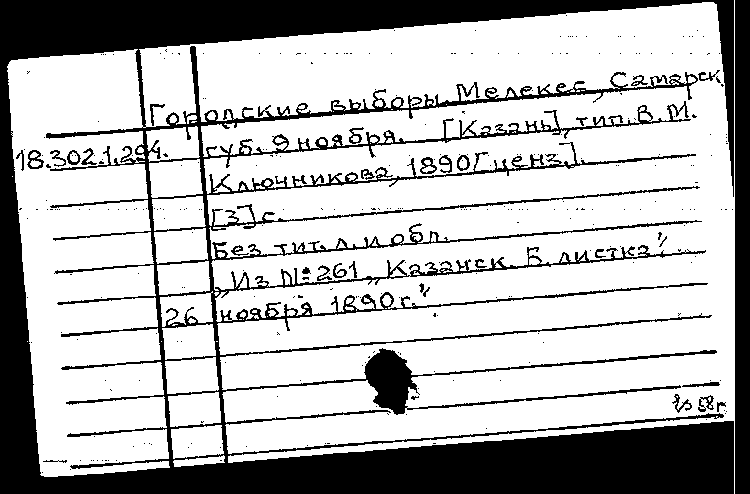 Городские выборы. Мелекес, Самарск.
18.302.1.294. губ. 9 ноября. [Казань], тип. В. М.
Ключникова, 1890 [ценз.].
[3] с.
Без тит. л. и обл.
„Из № 261 „Казанск. Б. листка".
26 ноября 1890 г."
58 г